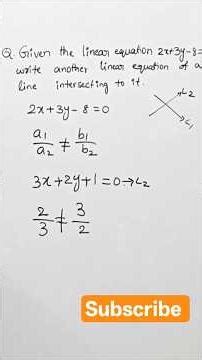 Q. Given the linear equation 2x+3y-8=
write another linear equation of a
line intersecting to it.
2x+3y-8=0
a₁/a₂ ≠ b₁/b₂
L₂
L₁
3x+2y+1=0→L₂
2/3 ≠ 3/2
Subscribe